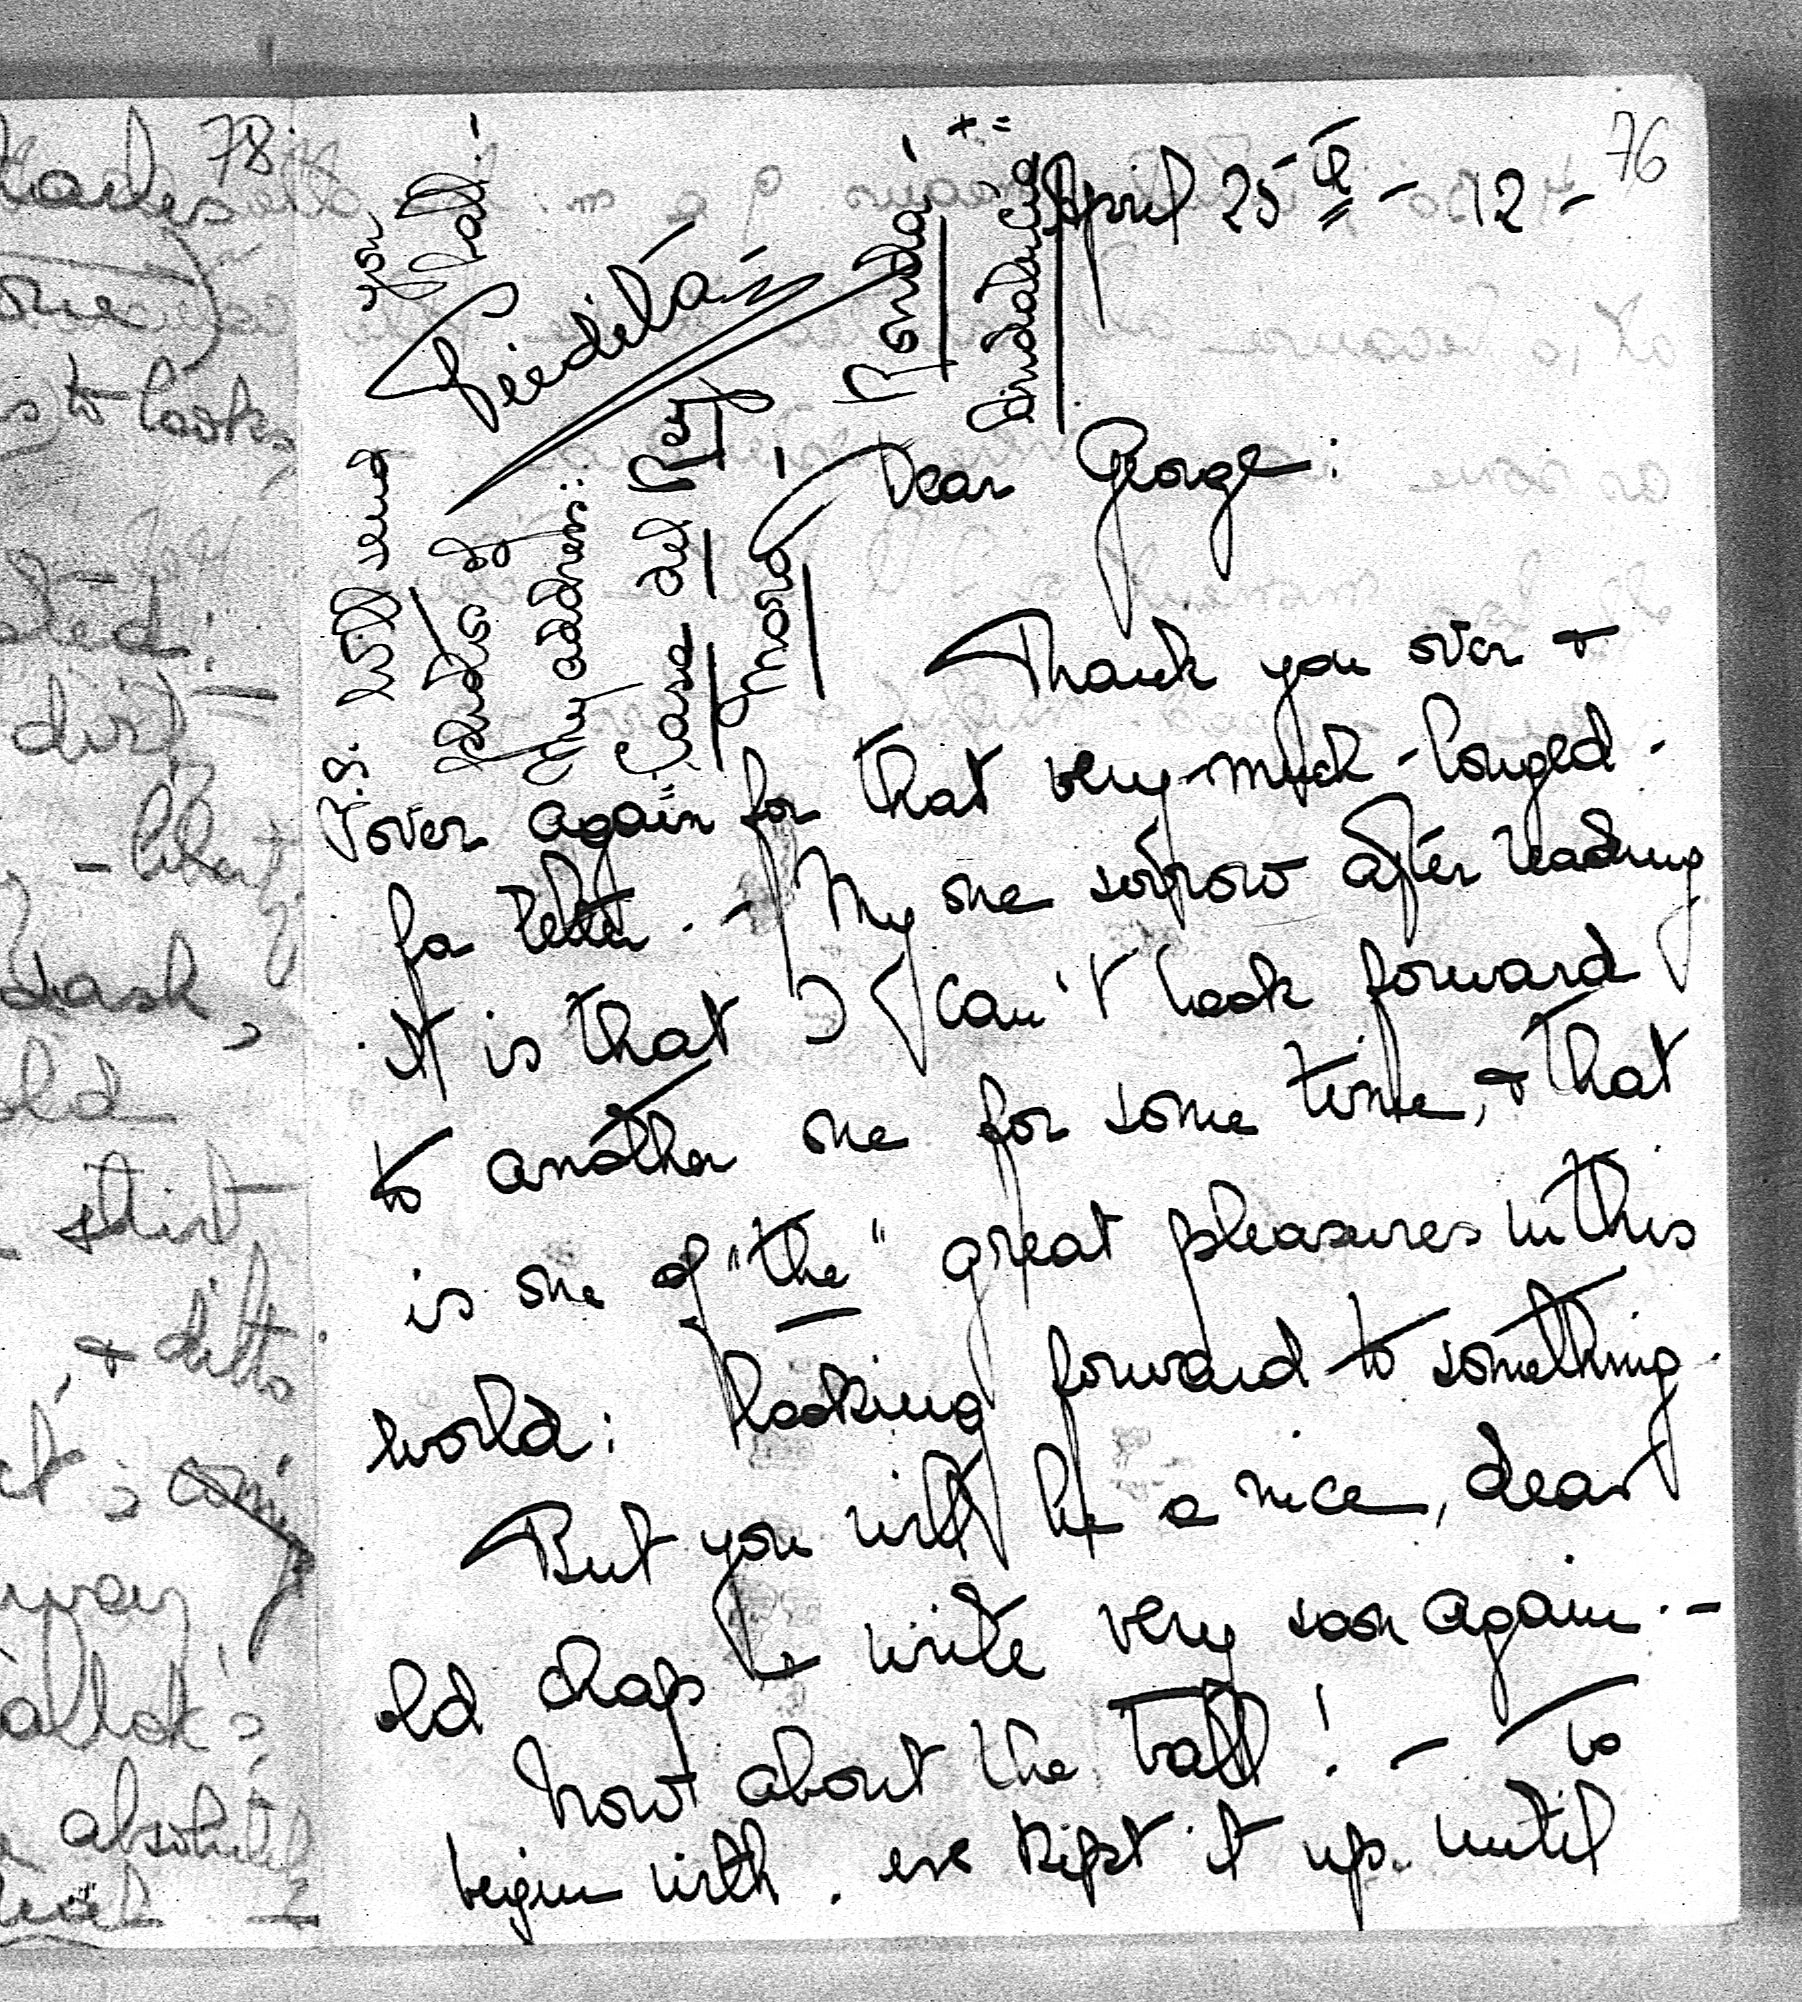 76
April 25th - 12 -
Dear George:
Thank you over &
over again for that very-much-longed-
for letter. - My one sorrow after reading
it is that I can't look forward
to another one for some time, & that
is one of "the" great pleasures in this
world: looking forward to something.
But you will be a nice, dear
old chap & write very soon again. -
Now about the Ball! - To
begin with, we kept it up until
P.S. Will send you
photos of Ball!
My address:
Casa del Rey
Moro,
Ronda
Andalucia
Piedita
78
to look
dirt
old
shirt
& ditto